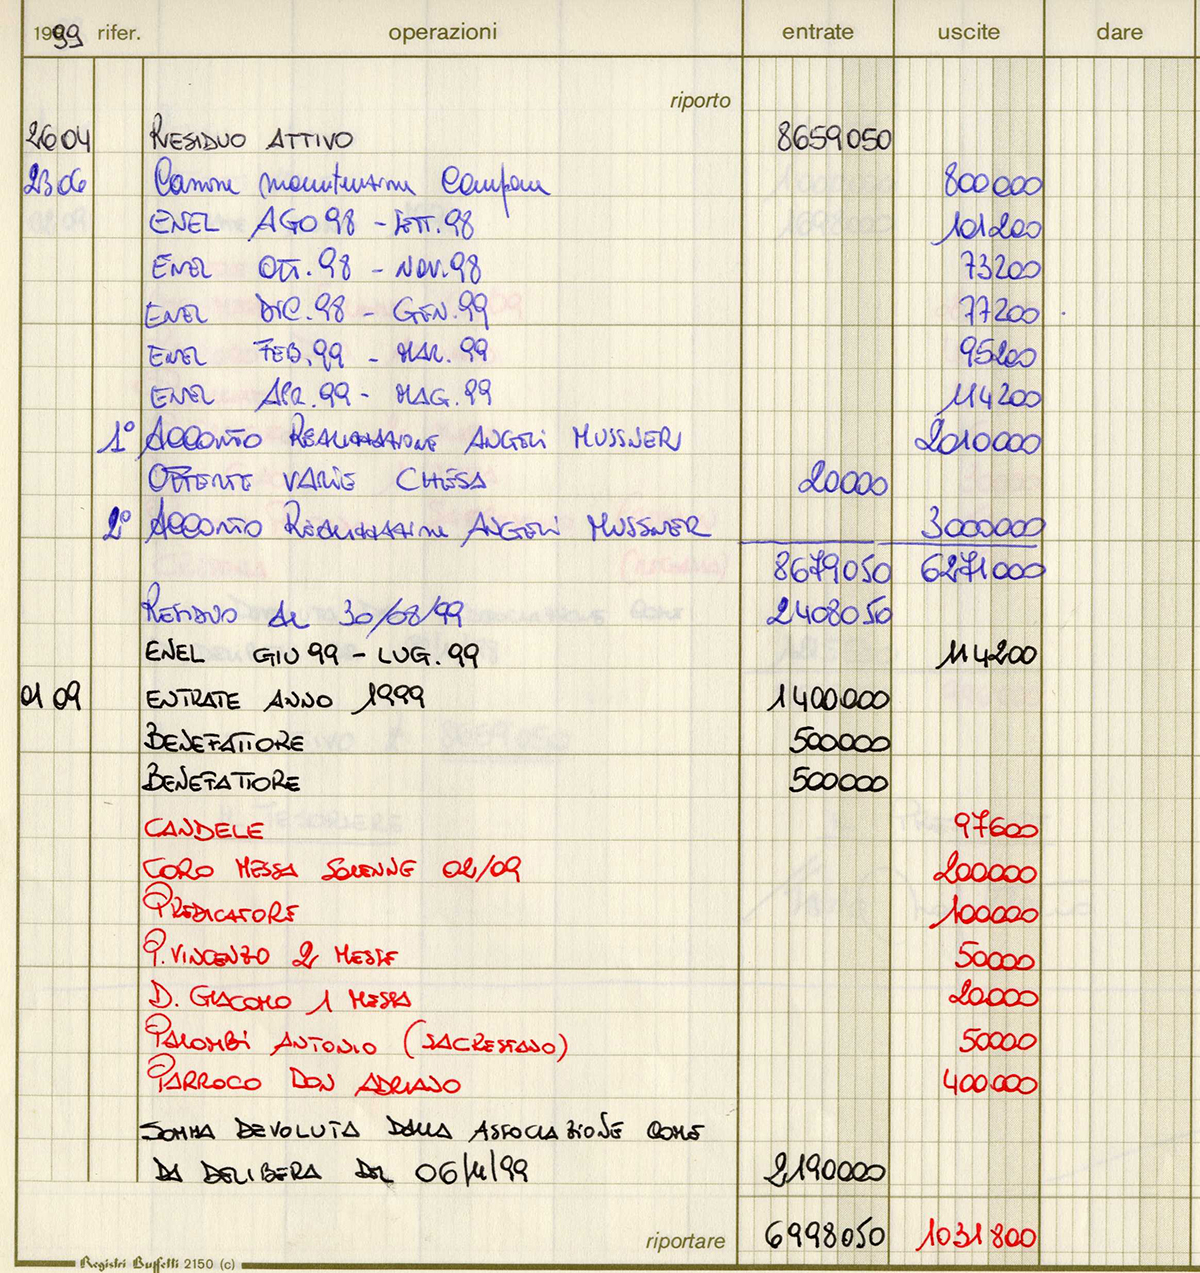 1999 rifer. operazioni entrate uscite dare
riporto
26 04 RESIDUO ATTIVO 8659050
23 06 Canone manutenzione Campane 800000
ENEL AGO 98 - SETT. 98 101200
ENEL OTT. 98 - NOV. 98 73200
ENEL DIC. 98 - GEN. 99 77200
ENEL FEB. 99 - MAR. 99 95200
ENEL APR. 99 - MAG. 99 114200
1° ACCONTO REALIZZAZIONE ANGELI MUSSNERI 2010000
OFFERTE VARIE CHIESA 20000
2° ACCONTO REALIZZAZIONE ANGELI MUSSNER 3000000
8679050 6271000
RESIDUO AL 30/08/99 2408050
ENEL GIU 99 - LUG. 99 114200
01 09 ENTRATE ANNO 1999 1400000
BENEFATTORE 500000
BENEFATTORE 500000
CANDELE 97600
CORO MESSA SOLENNE 02/09 200000
PREDICATORE 100000
P. VINCENZO 2 MESSE 50000
D. GIACOMO 1 MESSA 20000
PALOMBI ANTONIO (SACRESTANO) 50000
PARROCO DON ADRIANO 400000
SOMMA DEVOLUTA DALLA ASSOCIAZIONE COME
DA DELIBERA DEL 06/11/99 2190000
riportare 6998050 1031800
Registri Buffetti 2150 (c)